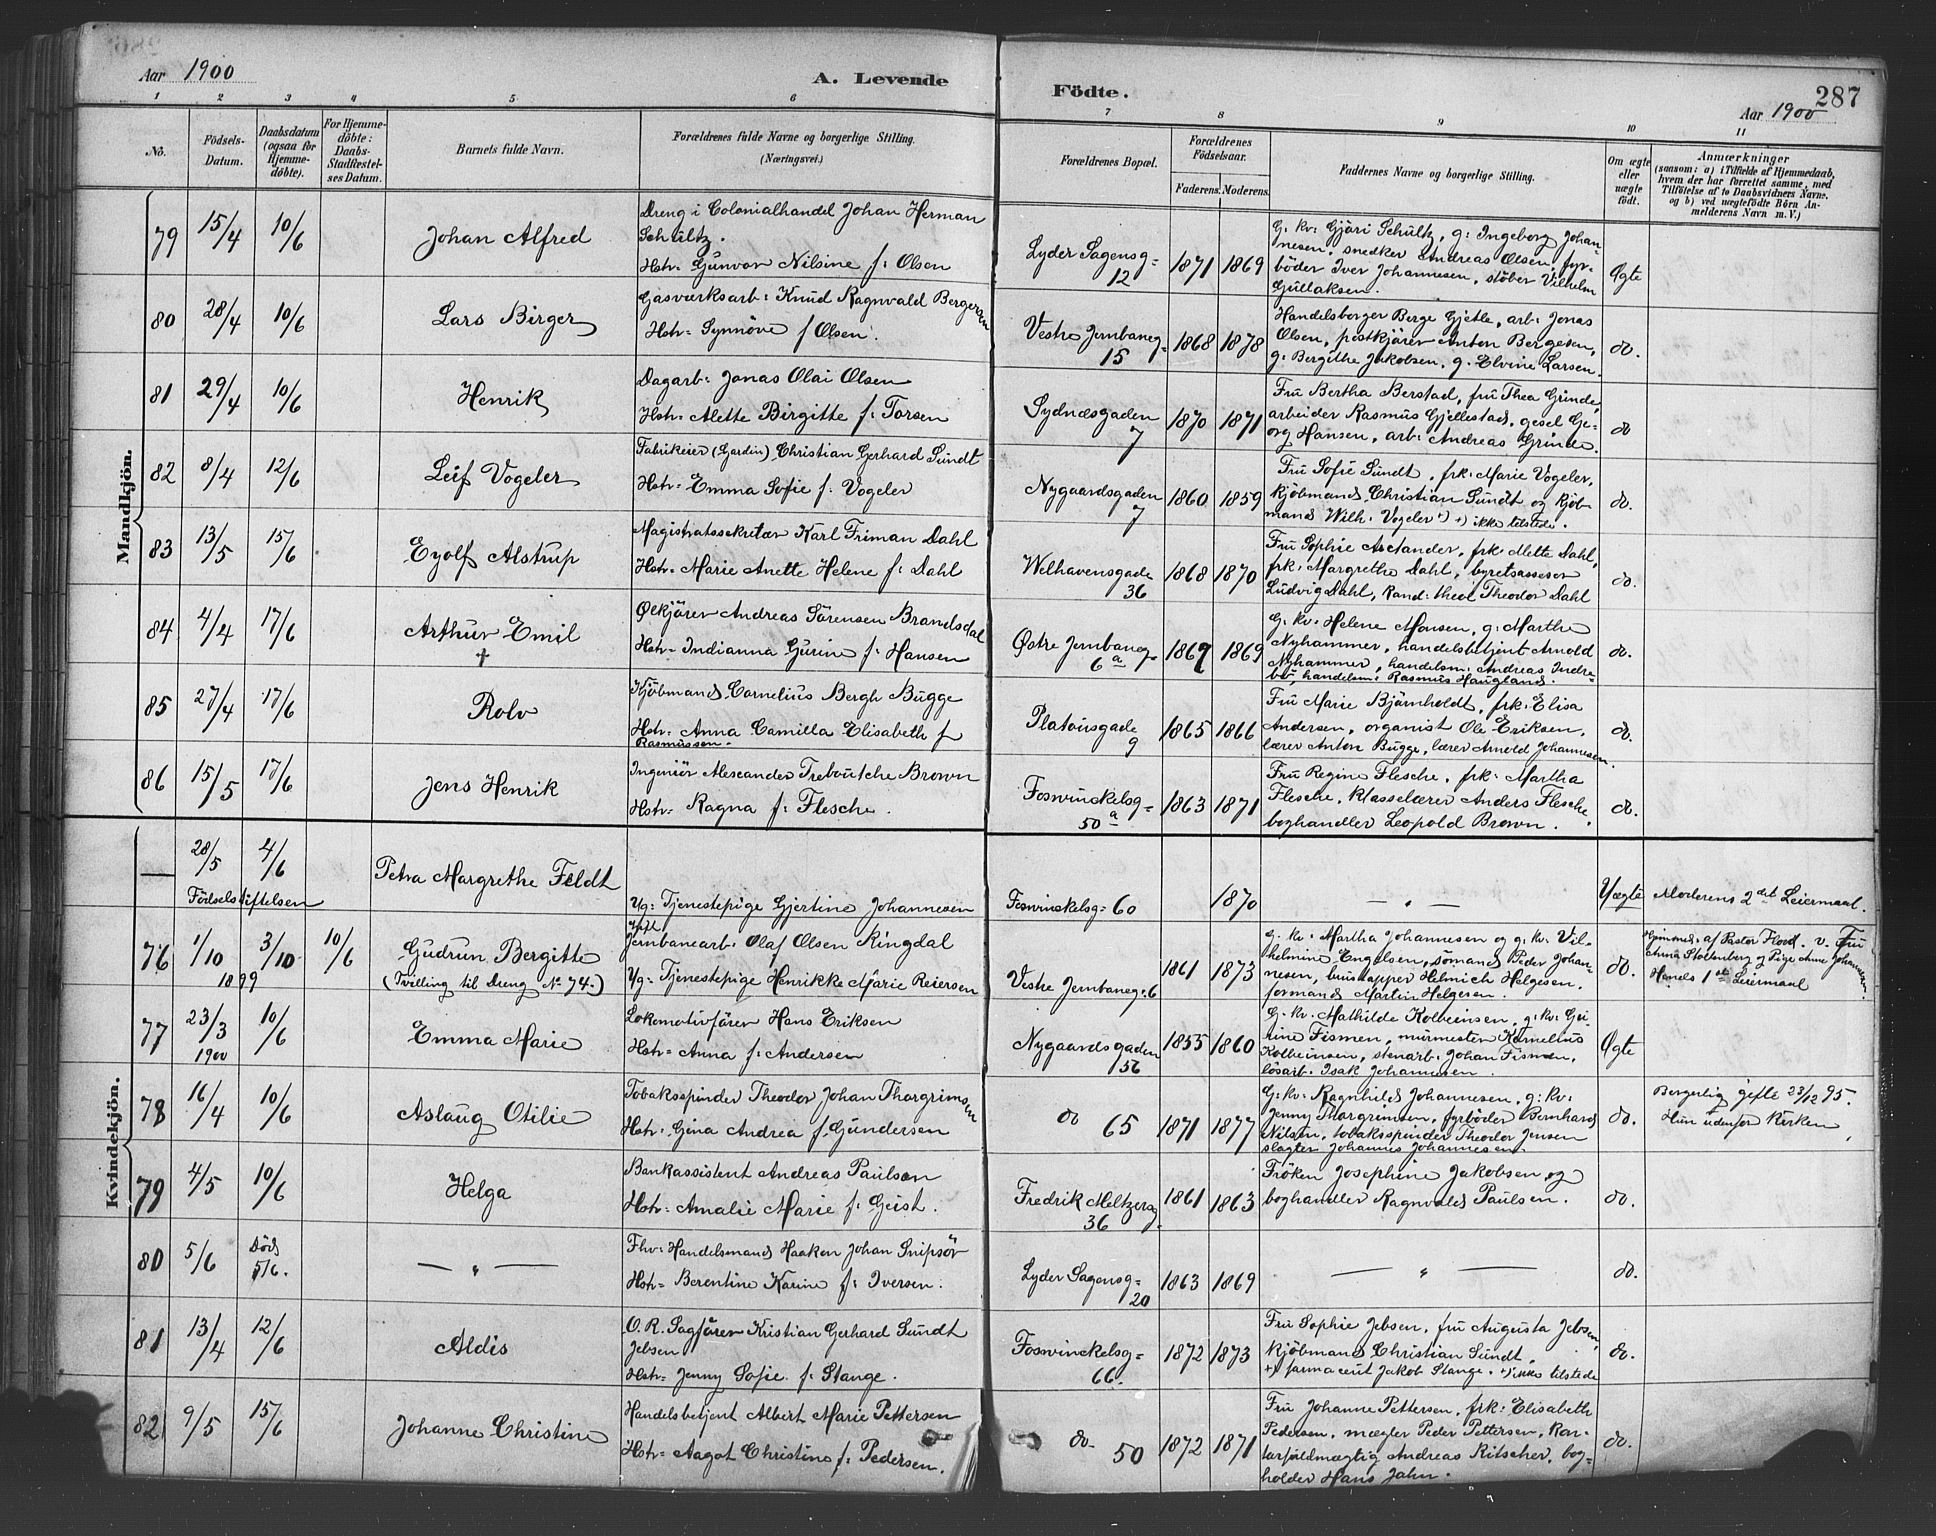 Aar 1900
A. Levende Födte.
Aar 1900
287
1 2 3 4 5 6 7 8 9 10 11
No.
Födsels-Datum.
Daabsdatum (ogsaa for Hjemme-döbte).
For Hjemme-döbte: Daabs-Stadfæstel-ses Datum.
Barnets fulde Navn.
Forældrenes fulde Navne og borgerlige Stilling.
(Næringsvei.)
Forældrenes Bopæl.
Forældrenes Födselsaar.
Faderens. Moderens.
Faddernes Navne og borgerlige Stilling.
Om ægte eller uægte födt.
Anmærkninger
(saasom: a) i Tilfælde af Hjemmedaab, hvem der har forrettet samme, med Tilföielse af to Daabsvidners Navne, og b) ved uægtefödte Börn An-melderens Navn m. V.)
Mandkjön.
79 15/4 10/6 Johan Alfred
Dreng i Colonialhandel Johan Herman
Schultz.
Hstr. Gunvor Nilsine f. Olsen
Lyder Sagensg. 12 1871 1869
G. kv. Gjöri Schultz, g. Ingeborg Johan-
nesen, snedker Andreas Olsen, fyr-
böder Iver Johannesen, stöber Vilhelm
Gullaksen.
Ægte
80 28/4 10/6 Lars Birger
Gasværksarb. Knud Ragnvald Bergersen
Hstr. Synnöve f. Olsen.
Vestre Jernbaneg. 15 1868 1878
Handelsborger Berge Gjetle, arb. Jonas
Olsen, postkjörer Anton Bergesen,
g. Bergithe Jakobsen, g. Elvine Larsen.
do.
81 29/4 10/6 Henrik
Dagarb. Jonas Olai Olsen
Hstr. Alette Birgitte f. Torsen
Sydnæsgaden 7 1870 1871
Fru Bertha Berstad, fru Thea Grinde,
arbeider Rasmus Gjellestad, gesel Ge-
org Hansen, arb. Andreas Grinde.
do
82 8/4 12/6 Leif Vogeler
Fabrikeier (Gardin) Christian Gerhard Sundt
Hstr. Emma Sofie f. Vogeler
Nygaardsgaden 7 1860 1859
Fru Sofie Sundt, frk. Marie Vogeler,
kjöbmand Christian Sundt og kjöb-
mand Wilh. Vogeler +) +) ikke tilstede.
do.
83 13/5 15/6 Eyolf Alstrup
Magistratssekretær Karl Friman Dahl
Hstr. Marie Anette Helene f. Dahl
Welhavensgade 36 1868 1870
Fru Sophie Arctander, frk. Mette Dahl,
frk. Margrethe Dahl, byretsassessor
Ludvig Dahl, kand. theol Theodor Dahl
do.
84 4/4 17/6 Arthur Emil
†
Ölkjörer Andreas Sörensen Brandsdal
Hstr. Indianna Gurine f. Hansen
Østre Jernbaneg. 6 a 1867 1869
G. kv. Helene Monsen, g. Marthe
Nyhammer, handelsbetjent Arnold
Nyhammer, handelsm. Andreas Indre-
bö, handelsm. Rasmus Haugland.
do.
85 27/4 17/6 Rolv
Kjöbmand Cornelius Bergh Bugge
Hstr. Anna Camilla Elisabeth f.
Rasmussen.
Platousgade 9 1865 1866
Fru Marie Bjärnholdt, frk. Elisa
Andersen, organist Ole Eriksen,
lærer Anton Bugge, lærer Arnold Johannesen.
do.
86 15/5 17/6 Jens Henrik
Ingeniör Alexander Treboutche Brown
Hstr. Ragna f. Flesche.
Foswinckelsg. 50 a 1863 1871
Fru Regine Flesche, frk. Martha
Flesche, klasselærer Anders Flesche,
boghandler Leopold Brown.
do.
Kvindekjön.
— 28/5 4/6 Petra Margrethe Feldt
Födselstiftelsen
Ug. Tjenestepige Gjertine Johannesen
Foswinckelsg. 60 1870
— " —
Uægte
Moderens 2det Leiermaal.
76 1/10 1899 3/10 10/6 Gudrun Bergitte
(Tvilling til Dreng No 74.)
Jernbanearb. Olaf Olsen Ringdal
Ug. Tjenestepige Henrikke Marie Reiersen
Vestre Jernbaneg. 6 1861 1873
g. kv. Martha Johannesen og g. kv. Vil-
helmine Engelsen, sömand Peder Johan-
nesen, huustapper Helmich Helgesen,
formand Martin Helgesen.
do.
Hjemmed. af Pastor Hovd. v. Fru
Anna Stoltenberg og Pige Anne Johannesen.
Hendes 1ste Leiermaal
77 23/3 1900 10/6 Emma Marie
Lokomotivförer Hans Eriksen
Hstr. Anna f. Andersen
Nygaardsgaden 156 1855 1860
G. kv. Mathilde Kolbeinsen, g. kv. Gu-
rine Fismen, murmester Kornelius
Kolbeinsen, stenarb. Johan Fismen,
lösarb. Isak Johannesen.
Ægte
78 16/4 10/6 Aslaug Otilie
Tobaksspinder Theodor Johan Thorgrimsen
Hstr. Gina Andrea f. Gundersen
do 65 1871 1877
G. kv. Ragnhild Johannesen, g. kv.
Jenny Thorgrimsen, fyrböder Bernhard
Nilsen, tobaksspinder Theodor Jensen
slagter Johannes Johannesen.
do.
Borgerlig gifte 23/12 95.
Hun udenfor Kirken
79 4/5 10/6 Helga
Bankassistent Andreas Paulson
Hstr. Amalie Marie f. Geist.
Fredrik Meltzersg. 36 1861 1863
Fröken Josephine Jakobsen og
boghandler Ragnvald Paulsen.
do.
80 5/6 Död 5/6. — " —
Fhv. Handelsmand Haaken Johan Snipsör
Hstr. Berentine Karine f. Iversen.
Lyder Sagensg. 20 1863 1869
— " —
do.
81 13/4 12/6 Aldis
O. R. Sagförer Kristian Gerhard Sundt
Jebsen
Hstr. Jenny Sofie f. Stange.
Foswinckelsg. 66. 1872 1873
Fru Sophie Jebsen, fru Augusta Jebsen,
kjöbmand Christian Sundt,
+) farmaceut Jakob Stange. +) ikke tilstede
do.
82 9/5 15/6 Johanne Christine
Handelsbetjent Albert Marie Pettersen
Hstr. Aagot Christine f. Pedersen.
do 50 1872 1871
Fru Johanne Pettersen, frk. Elisabeth
Pedersen, mægler Peder Pettersen, Kon-
torfuldmægtig Andreas Ritscher, bog-
holder Hans Jahn.
do.